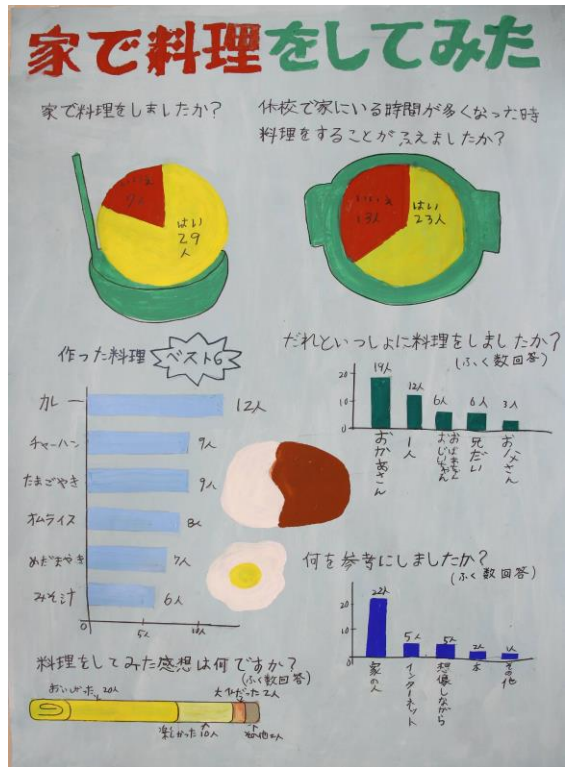 家で料理をしてみた
家で料理をしましたか?
いいえ
はい
29
人
休校で家にいる時間が多くなった時
料理をすることがふえましたか?
いいえ
13人
はい
23人
作った料理 ベスト6
カレー 12人
チャーハン 9人
たまごやき 9人
オムライス 8人
めだまやき 7人
みそ汁 6人
0 5人 10人
だれといっしょに料理をしましたか?
(ふく数回答)
20
10
0
19人 12人 6人 6人 3人
おかあさん
1人
おばあちゃん
おじいちゃん
兄だい
お父さん
何を参考にしましたか?
(ふく数回答)
20
10
0
22人 5人 5人 2人
家の人
インターネット
想像しながら
本
その他
料理をしてみた感想は何ですか?
(ふく数回答)
おいしかった 20人
楽しかった 10人
大変だった 2人